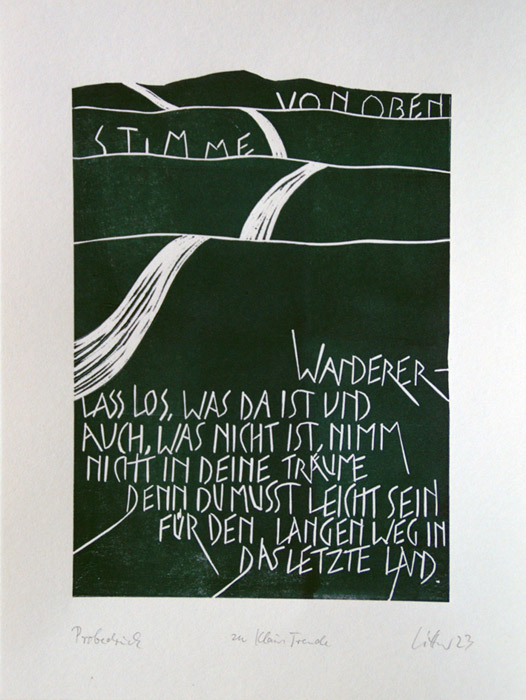 VON OBEN
STIMME
WANDERER-
LASS LOS, WAS DA IST UND
AUCH, WAS NICHT IST, NIMM
NICHT IN DEINE TRÄUME
DENN DU MUSST LEICHT SEIN
FÜR DEN LANGEN WEG IN
DAS LETZTE LAND.
Probedruck
zu Klaus Trende
23